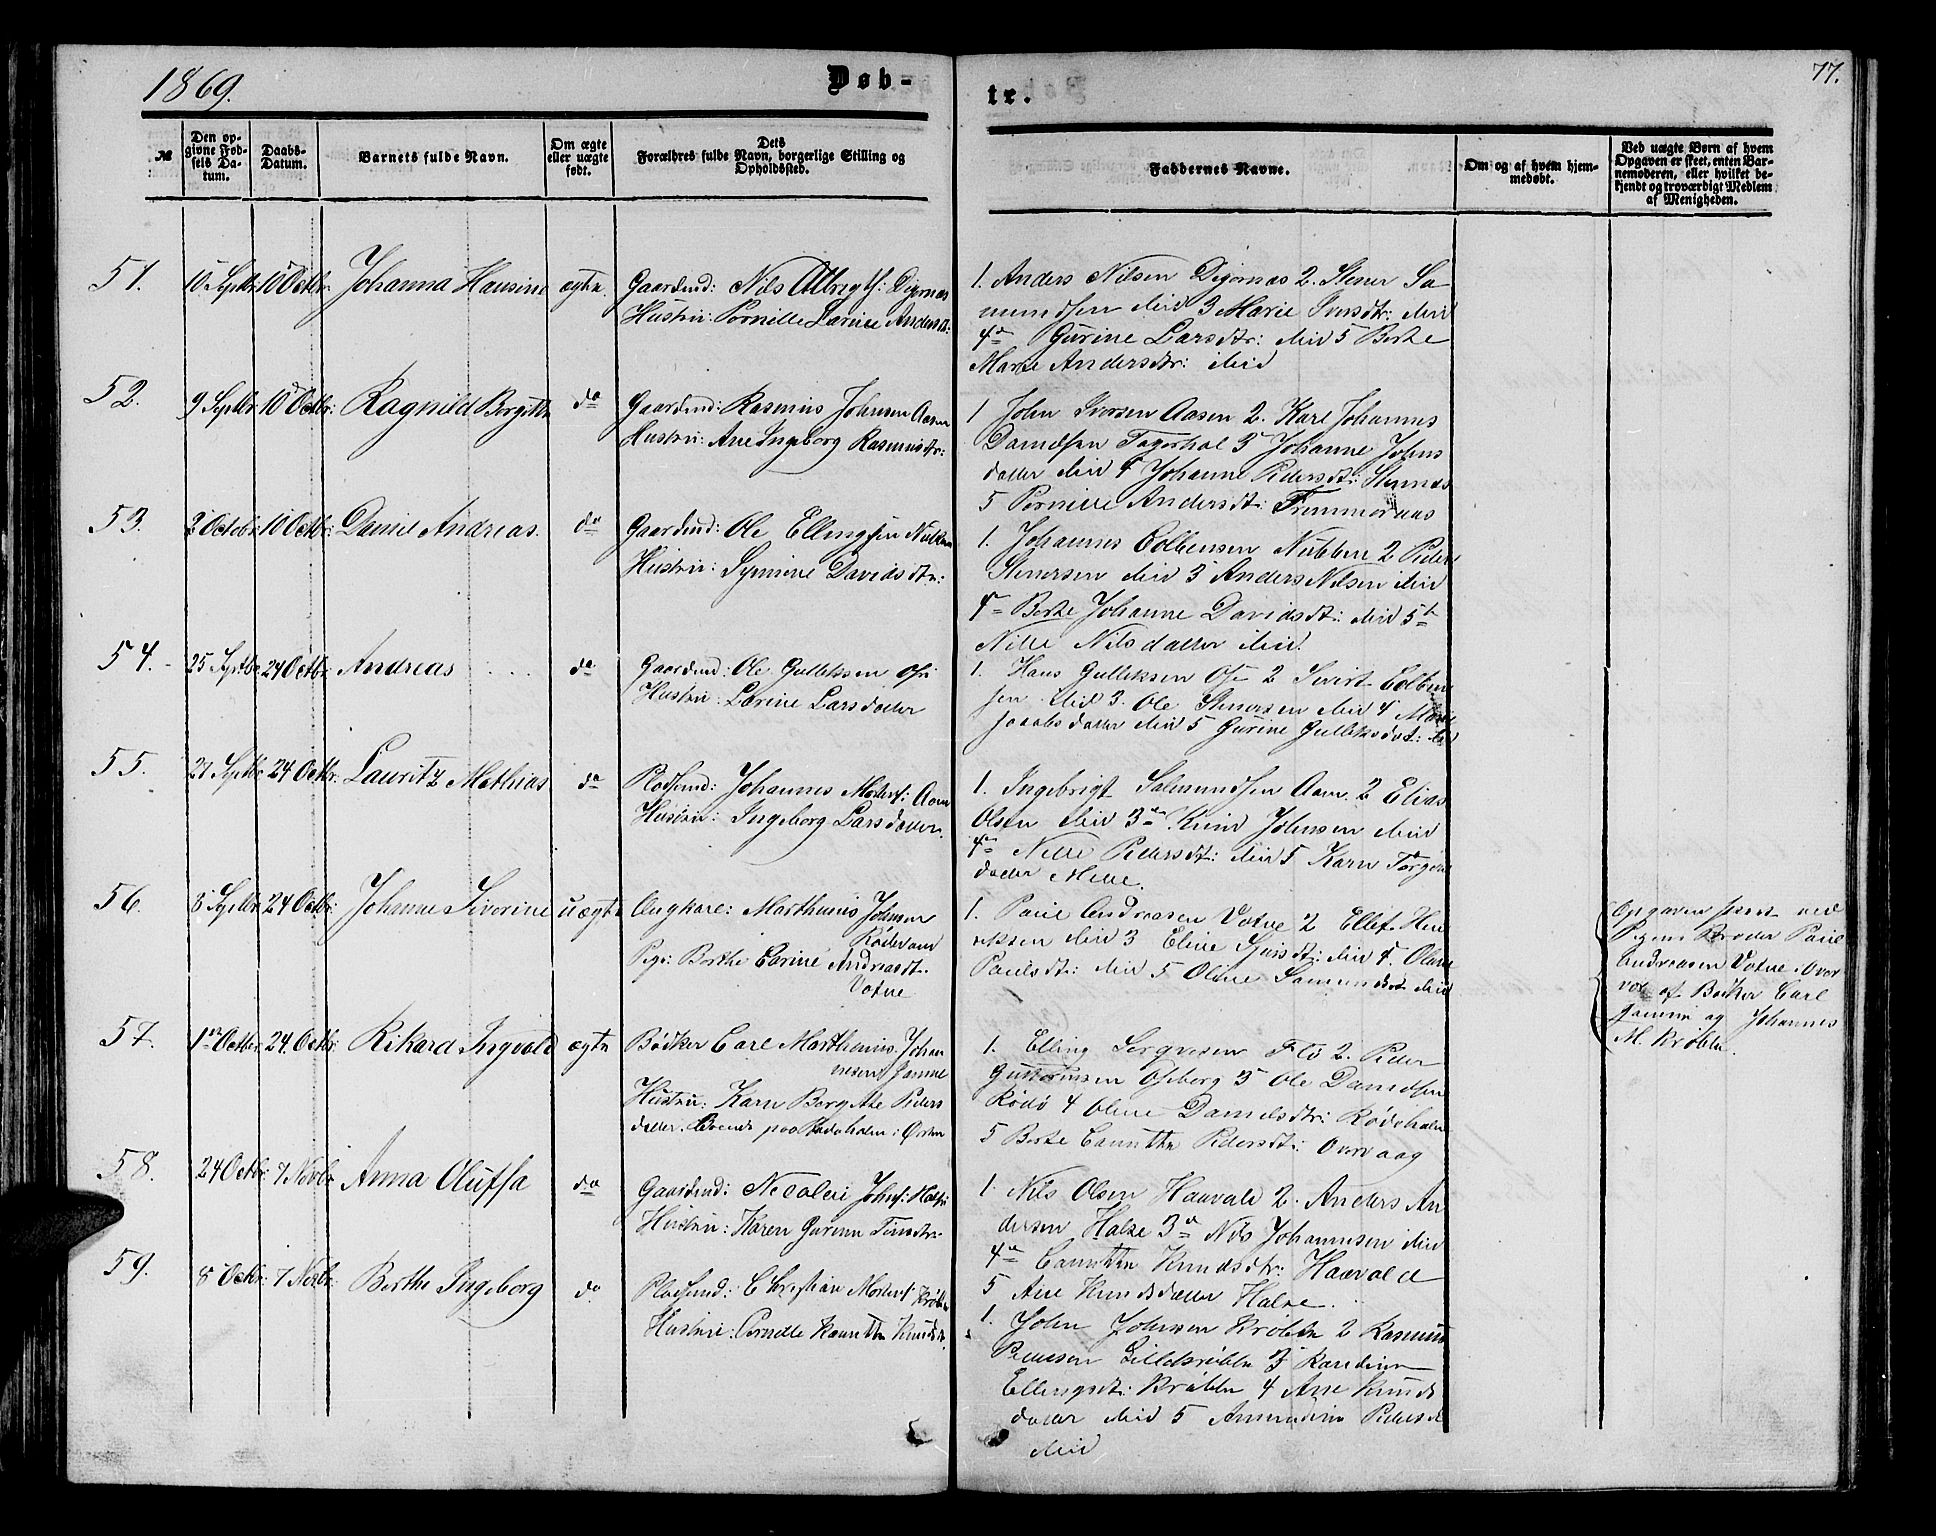 1869.
Døb-
tr.
77.
№
Den op-
givne Fød-
sels Da-
tum.
Daabs-
Datum.
Barnets fulde Navn.
Om ægte
eller uægte
født.
Dets
Forældres fulde Navn, borgerlige Stilling og
Opholdssted.
Faddernes Navne.
Om og af hvem hjem-
medøbt.
Ved uægte Børn af hvem
Opgaven er skeet, enten Bar-
nemoderen, eller hvilket be-
kjendt og troværdigt Medlem
af Menigheden.
51. 10 Septbr 10 Octbr. Johanna Hansine ægte.
Gaardmd: Nils Albrigts: Digernæs
Hustru: Pernille Larine Andersdt:
1. Anders Nilsen Digernæs 2. Stener Sa
mundsen ibid 3 Marie Iversdtr: ibid
4 Gurine Larsdtr: ibid 5 Berte
Marte Andersdtr: ibid
52. 9 Septbr. 10 Octbr. Ragnild Bergitte do
Gaardmd: Rasmus Johnsen Aasen
Hustru: Ane Ingeborg Rasmusdtr:
1 John Iversen Aasen 2. Karl Johannes
Danielsen 3 Johanne Johns
datter ibid 4 Johanne Pedersdt:
5 Pernille Andersdt:
53. 3 Octobr. 10 Octbr: Daniel Andreas. do
Gaardmd: Ole Ellingsen Nubben
Hustru: Synnine Davidsdtr:
1. Johannes Colbensen Nubben 2 Peder
Stenersen ibid 3 Anders Nilsen ibid
4 Berte Johanne Davidsdt: ibid 5
Nille Nilsdatter ibid.
54. 25 Septbr 24 Octbr. Andreas do
Gaardmd: Ole Gulleksen Ose
Hustru: Larine Larsdatter
1. Hans Gulleksen Ose 2 Sivert Colben
sen ibid 3. Ole Stenersen ibid 4
Jacobsdatter ibid 5 Gurine Gulleksdat:
55. 27 Septbr 24 Octbr. Lauritz Mathias do
Pladsmd: Johannes Aam
Hustru: Ingeborg Larsdatter.
1. Ingebrigt Salmundsen Aam 2 Elias
Olsen ibid 3 Knud Johnsen ibid
4 Nille Pedersdt: ibid 5 Karn
datter Melle.
56. 8 Septbr. 24 Octbr. Johanne Siverine uægte
Ungkarl: Marthinus Johnsen
Pige: Berthe Carine Andreasdt.
Vatne
1. Paul Andreasen Vatne 2 Ellef Hen
riksen ibid 3 Eline ibid 4 Olave
Paulsdt: ibid 5 Oline Samundsdt ibid
Opgaven ved
Pigens Broder Paul
Andreasen Vatne i Over
vær af Bødker Carl
og Johannes
M. Krøbben.
57. 1 Octbr. 24. Octbr: Rikard Ingvald ægte
Bødker Carl Marthinus Johan
nesen
Hustru: Karn Bergitte Peders
datter. paa Rødeholm i Ørsten
1. Elling 2. Peder
3 Ole Danielsen
Rødø 4 Oline Danielsdtr: Rødeholm
5 Berte Pedersdt: Overvaag
58. 24 Octbr. 7 Novbr. Anna Oluffa do
Gaardmd: Nicolai
Hustru: Karen
1. Nils Olsen Haavold 2. Anders An
dersen Halse 3 Nils Johannesen ibid
4 Knudsdtr: Haavold
5 Ane Knudsdatter Halse.
59. 8 Octbr. 7 Novbr: Berthe Ingeborg do
Pladsmd: Christian
Hustru: Pernille
1. John Johnsen Krøbben 2 Rasmus
Pedersen Lillekrøbben 3
Ellingsdt: Krøbben 4 Ane Knuds
datter ibid 5
ibid